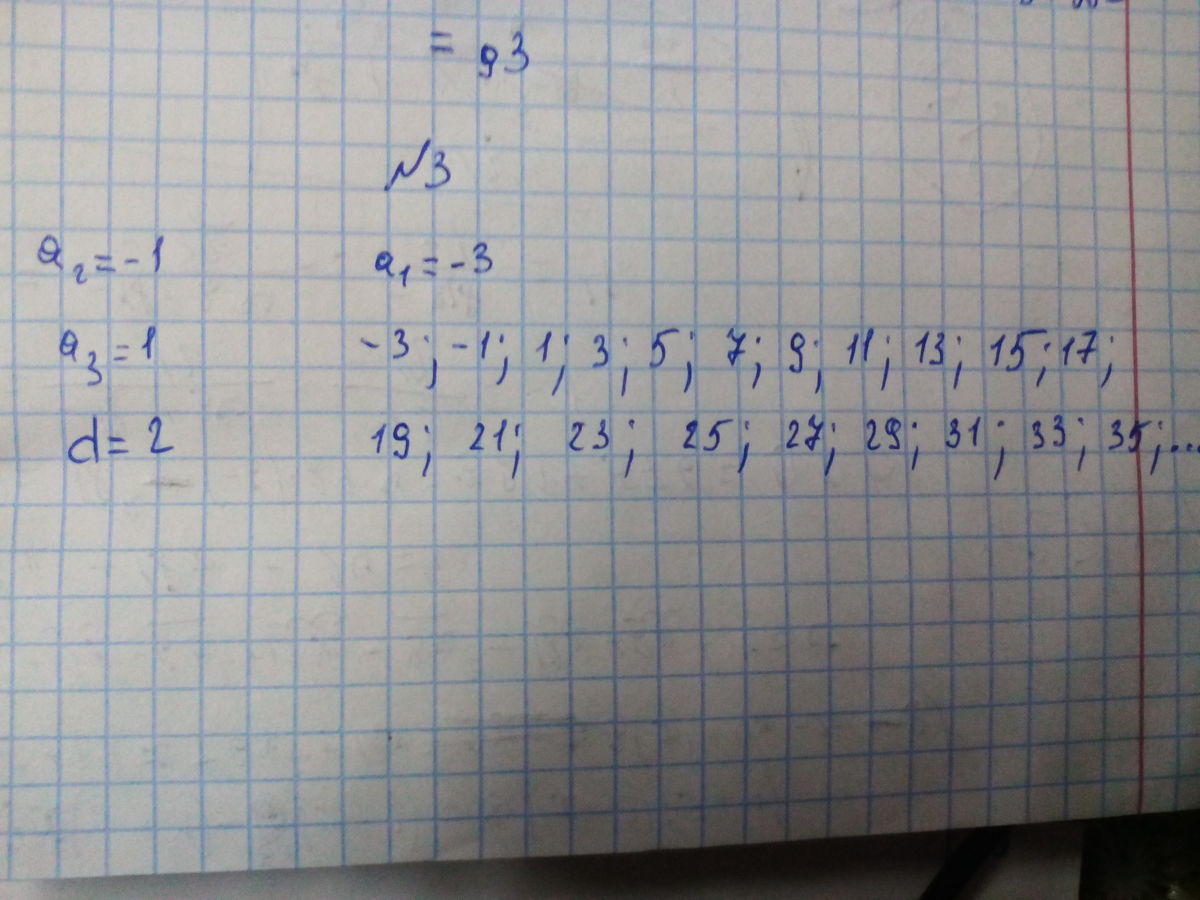 = 93
№3
a₂ = -1 a₁ = -3
a₃ = 1 -3; -1; 1; 3; 5; 7; 9; 11; 13; 15; 17;
d = 2 19; 21; 23; 25; 27; 29; 31; 33; 35; ...